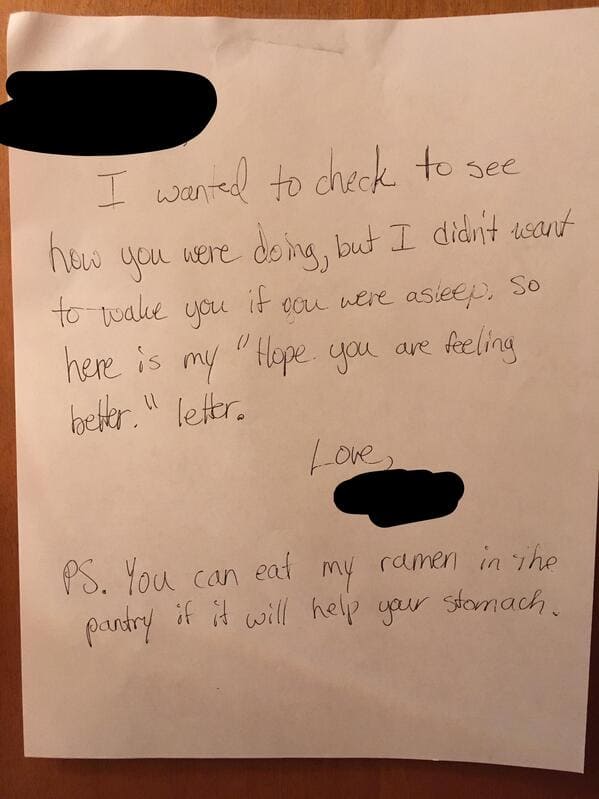 I wanted to check to see
how you were doing, but I didn't want
to wake you if you were asleep. So
here is my "Hope you are feeling
better." letter.
Love,
PS. You can eat my ramen in the
pantry if it will help your stomach.